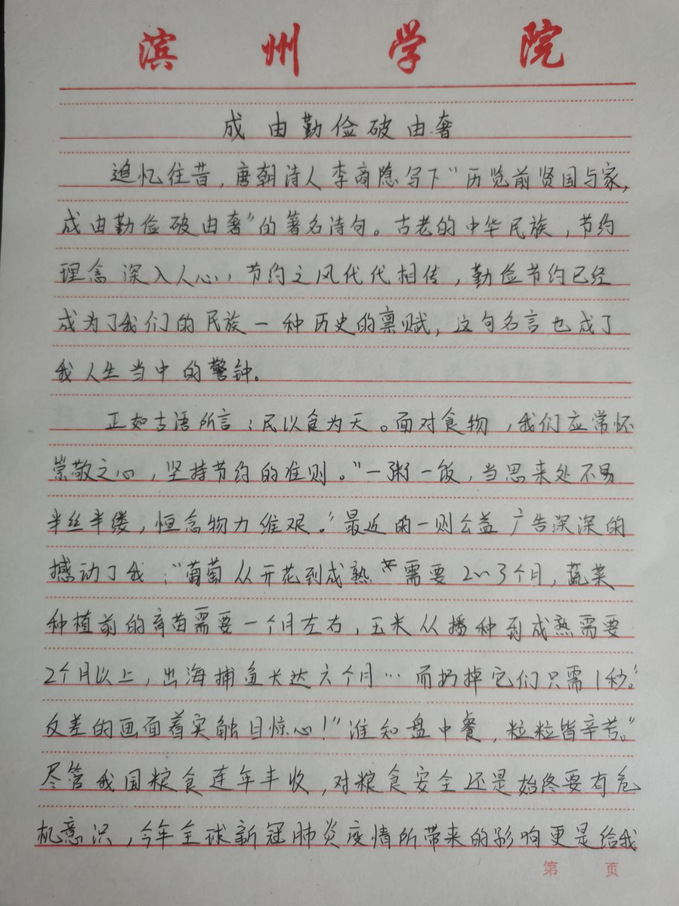 滨州学院
成由勤俭破由奢
追忆往昔，唐朝诗人李商隐写下“历览前贤国与家，
成由勤俭破由奢”的著名诗句。古老的中华民族，节约
理念深入人心，节约之风代代相传，勤俭节约已经
成为了我们的民族一种历史的禀赋，这句名言也成了
我人生当中的警钟。
正如古语所言：民以食为天。面对食物，我们应常怀
崇敬之心，坚持节约的准则。“一粥一饭，当思来处不易
半丝半缕，恒念物力维艰。”最近的一则公益广告深深的
撼动了我：“葡萄从开花到成熟需要2~3个月，蔬菜
种植前的育苗需要一个月左右，玉米从播种到成熟需要
2个月以上，出海捕鱼长达六个月…而扔掉它们只需1秒。”
反差的画面着实触目惊心！“谁知盘中餐，粒粒皆辛苦。”
尽管我国粮食连年丰收，对粮食安全还是始终要有危
机意识，今年全球新冠肺炎疫情所带来的影响更是给我
第 页